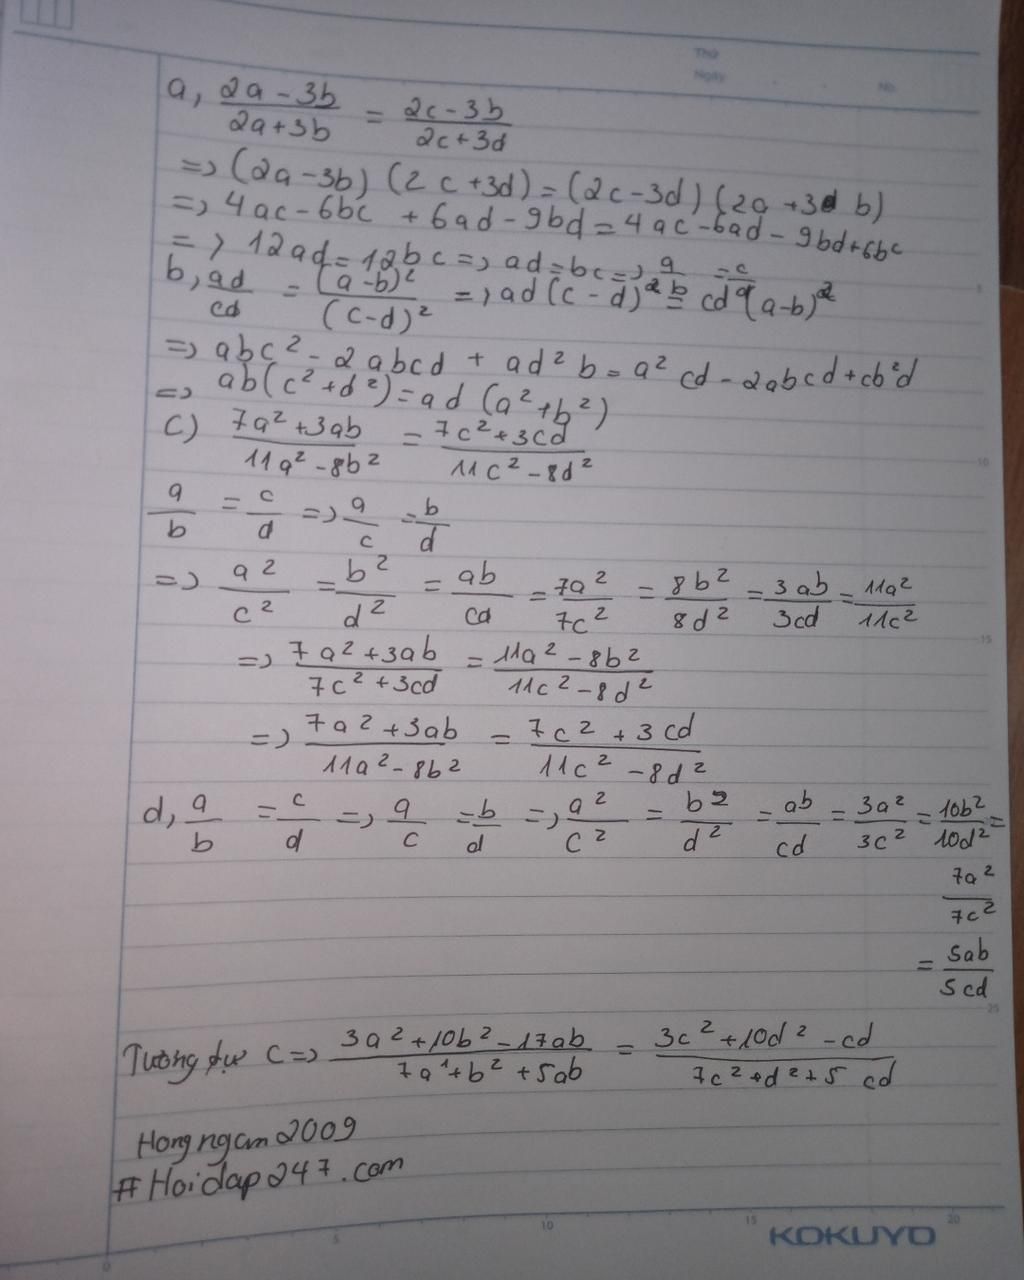 Thứ
Ngày No.
a, (2a - 3b)/(2a + 3b) = (2c - 3b)/(2c + 3d)
=> (2a - 3b) (2c + 3d) = (2c - 3d) (2a + 3 b)
=> 4ac - 6bc + 6ad - 9bd = 4ac - 6ad - 9bd + 6bc
=> 12ad = 12bc => ad = bc => a/b = c/d
b, ad/cd = (a - b)²/(c - d)² => ad (c - d)² = cd (a - b)²
=> abc² - 2abcd + ad²b = a²cd - 2abcd + cb²d
=> ab(c² + d²) = ad (a² + b²)
c) (7a² + 3ab)/(11a² - 8b²) = (7c² + 3cd)/(11c² - 8d²)
a/b = c/d => a/c = b/d
=> a²/c² = b²/d² = ab/cd = 7a²/7c² = 8b²/8d² = 3ab/3cd = 11a²/11c²
=> (7a² + 3ab)/(7c² + 3cd) = (11a² - 8b²)/(11c² - 8d²)
=> (7a² + 3ab)/(11a² - 8b²) = (7c² + 3cd)/(11c² - 8d²)
d, a/b = c/d => a/c = b/d => a²/c² = b²/d² = ab/cd = 3a²/3c² = 10b²/10d² =
7a²/7c²
= 5ab/5cd
Tương tự c => (3a² + 10b² - 17ab)/(7a² + b² + 5ab) = (3c² + 10d² - cd)/(7c² + d² + 5 cd)
Hongngan2009
#Hoidap247.com
5 10 15 20
KOKUYO